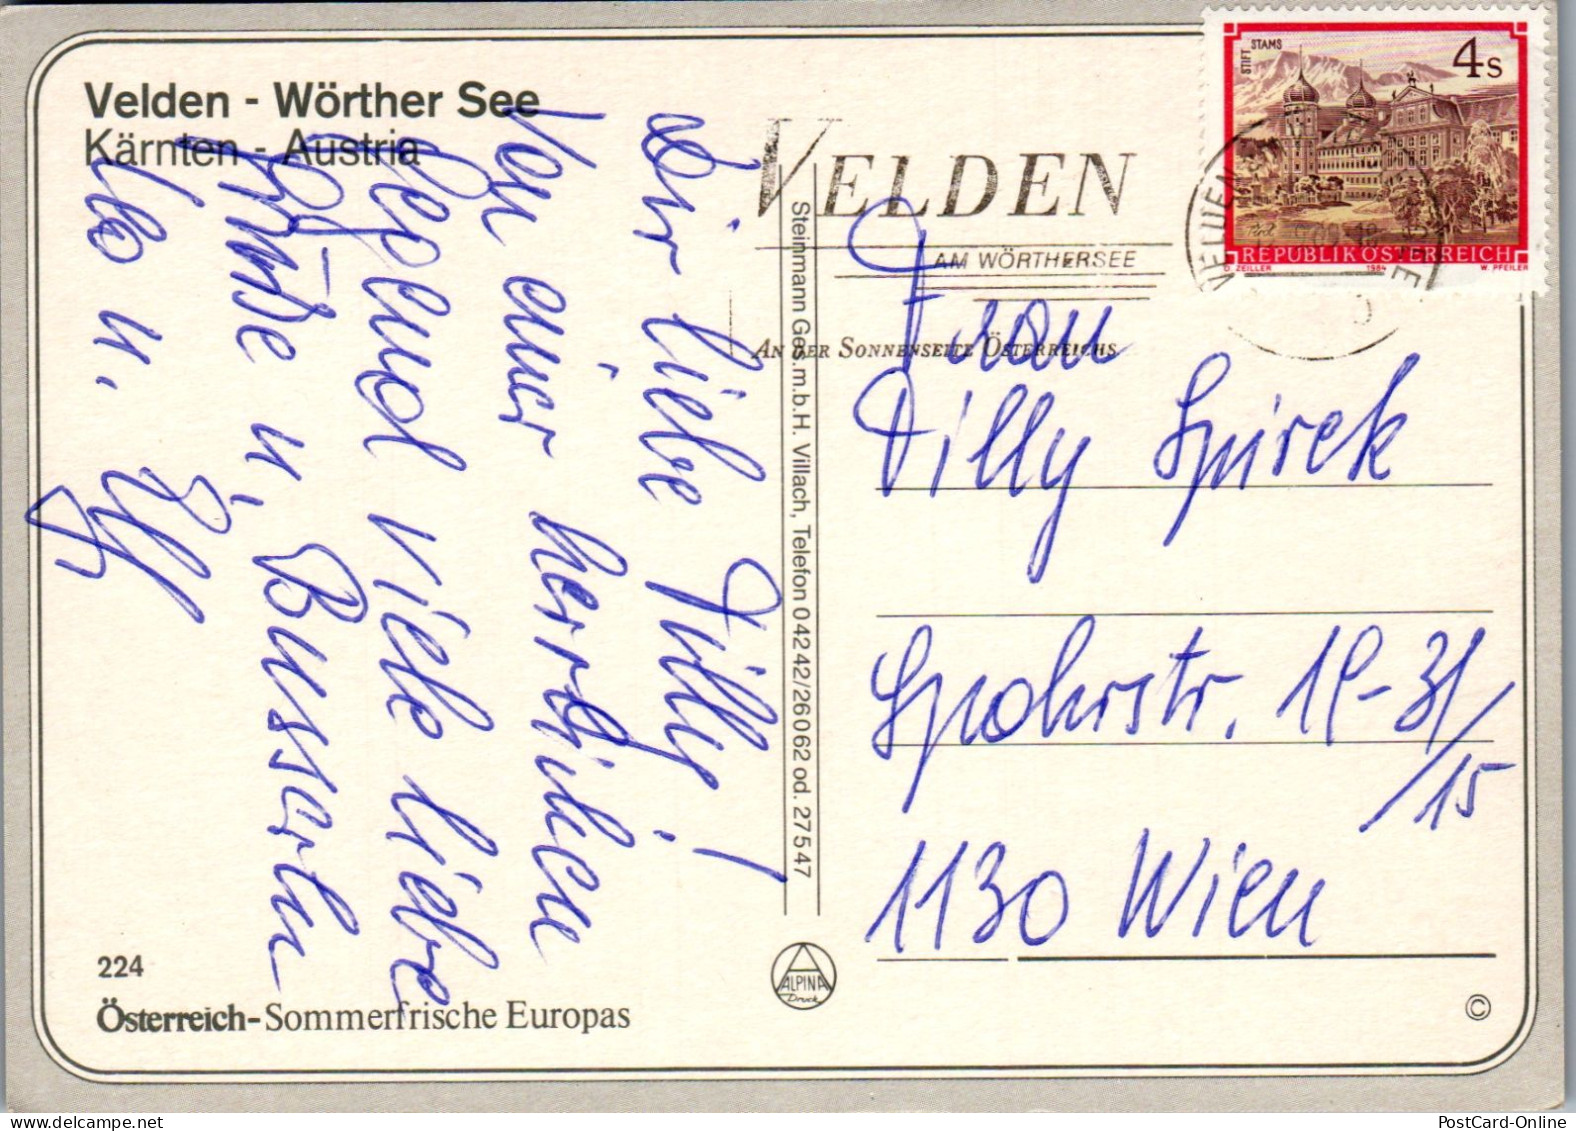 Velden - Wörther See
Kärnten - Austria
STIFT STAMS
4s
REPUBLIK ÖSTERREICH
O. ZEILLER 1984 W. PFEILER
VELDEN
AM WÖRTHERSEE
AN DER SONNENSEITE ÖSTERREICHS
Dir liebe Tilly!
Von einer herrlichen
Gegend viele liebe
Grüße u. Busserln
u.
Steinmann Ges.m.b.H. Villach, Telefon 04242/26062 od. 27547
Frau
Tilly Spirek
Spohrstr. 19-31/15
1130 Wien
224
Österreich-Sommerfrische Europas
ALPINA
Druck
©
PostCard-Online